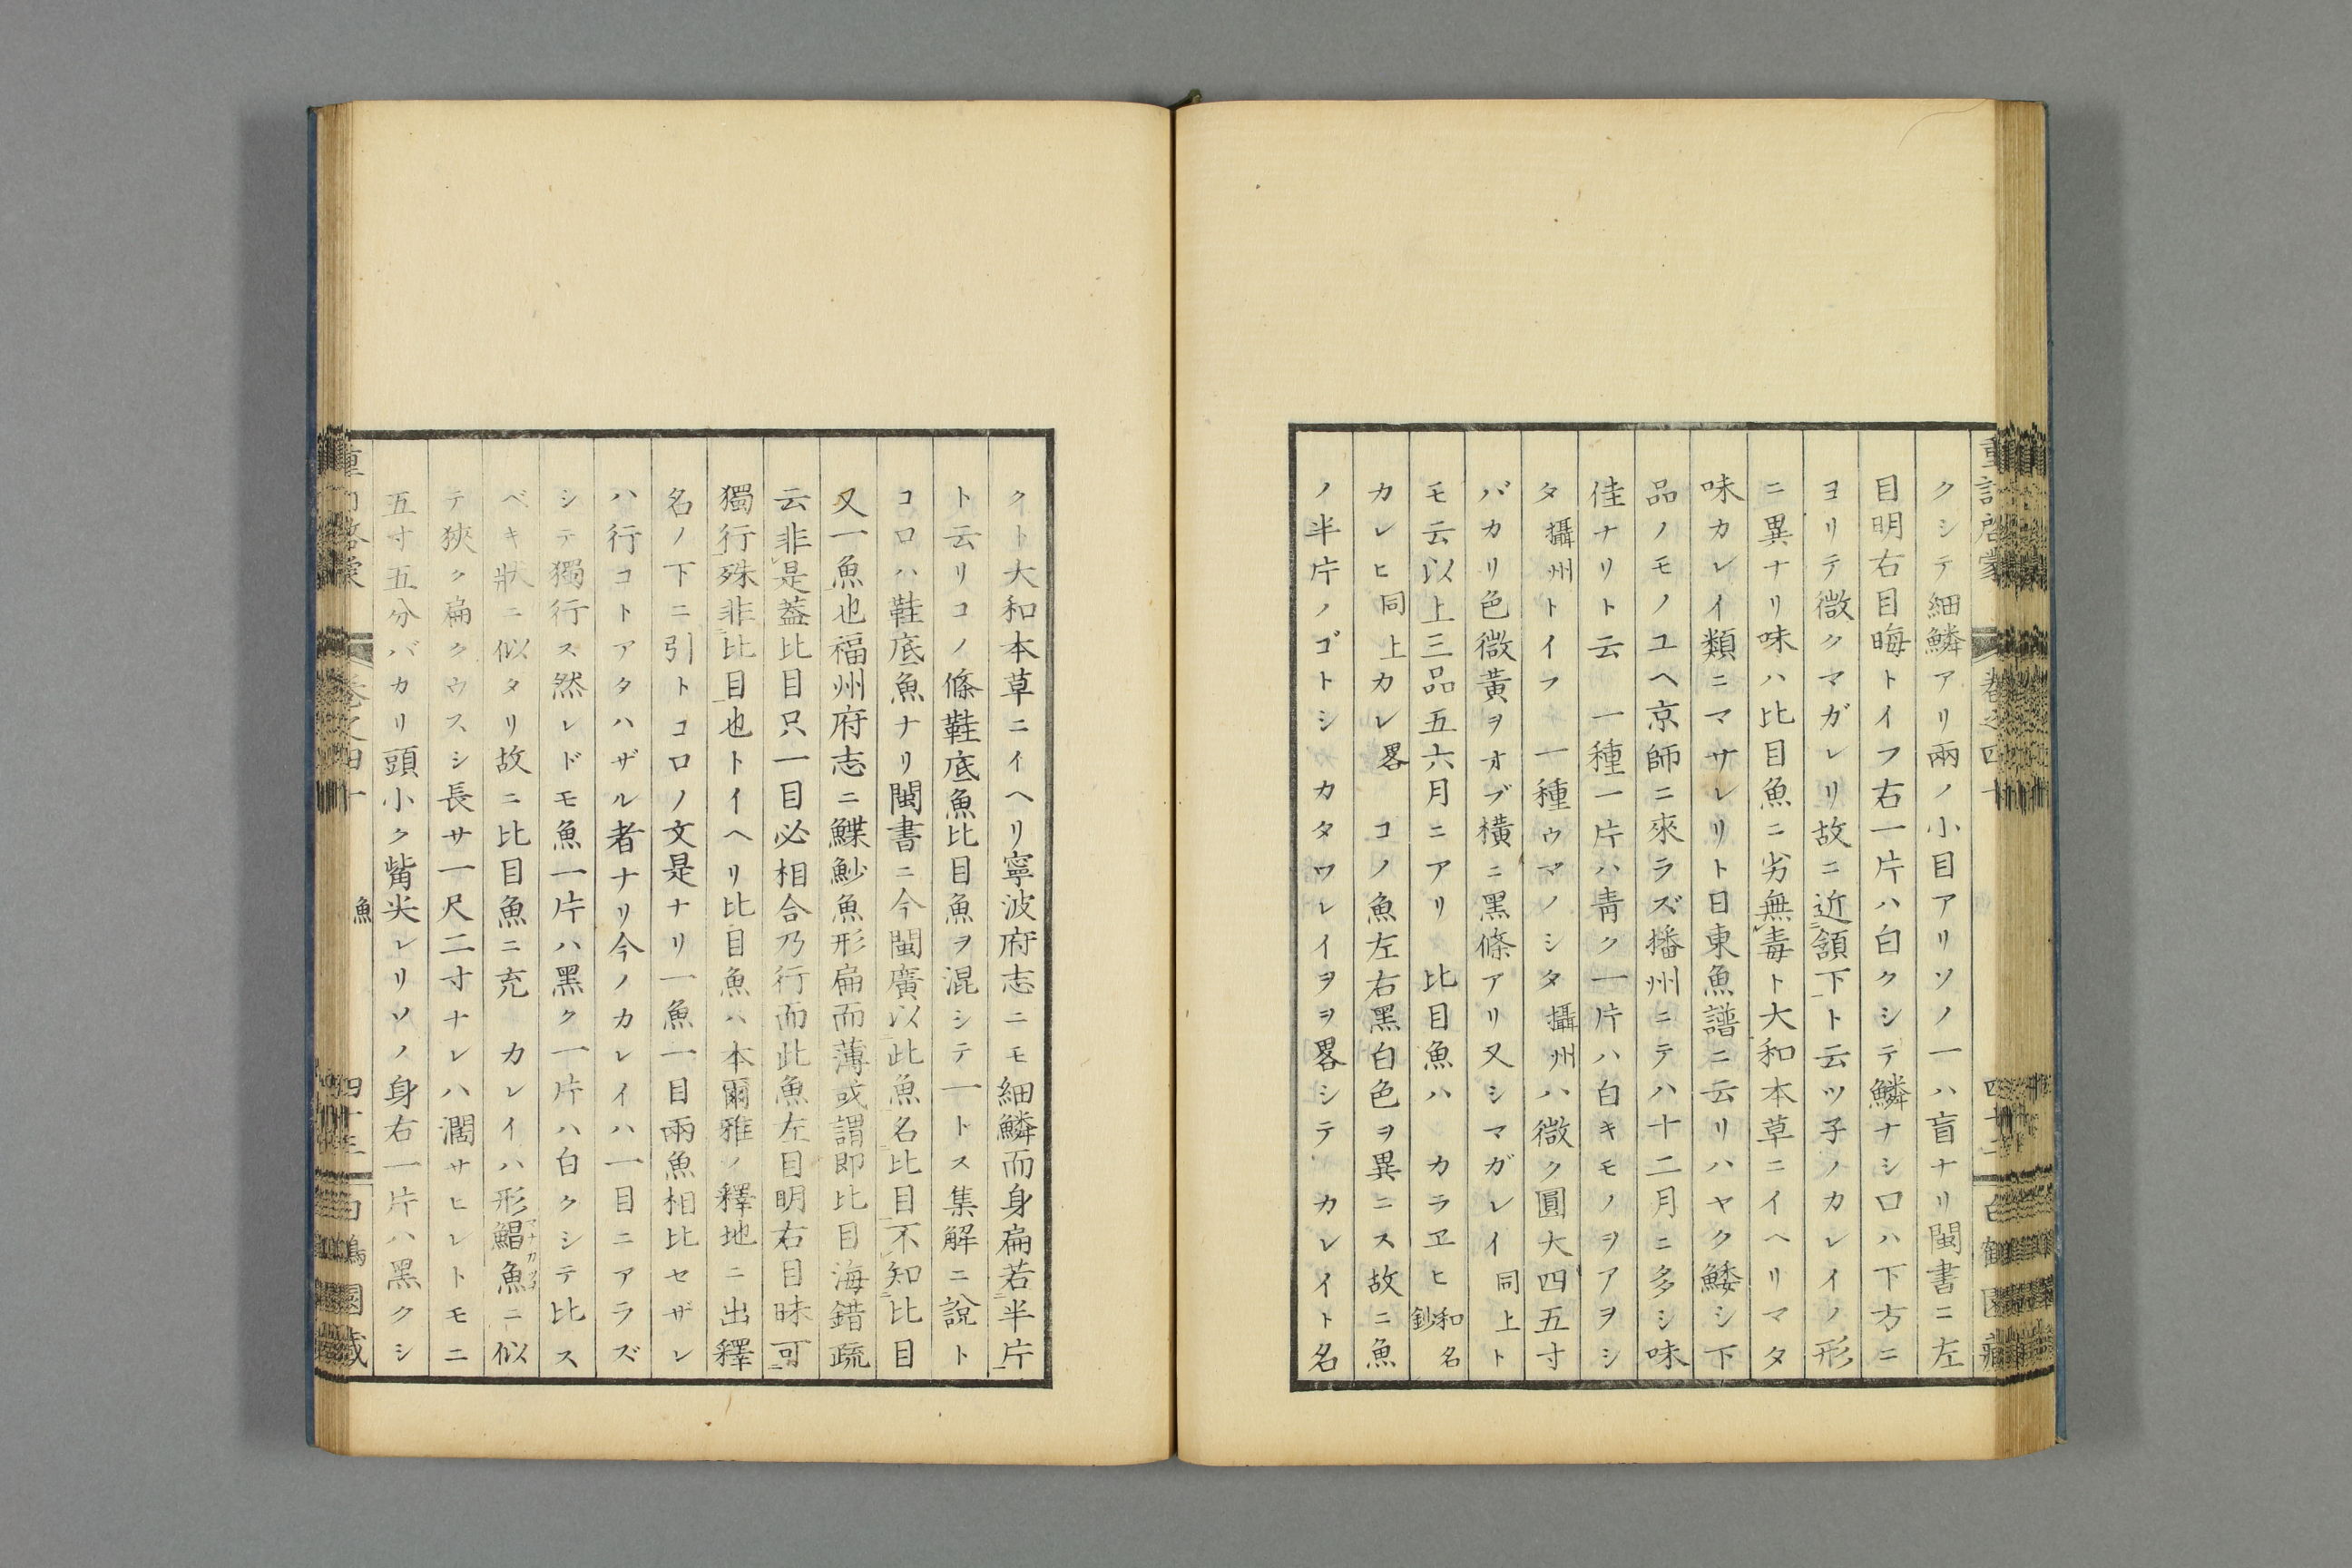 クシテ細鱗アリ兩ノ小目アリソノ一ハ盲ナリ閩書ニ左
目明右目晦トイフ右一片ハ白クシテ鱗ナシ口ハ下方ニ
ヨリテ微クマガレリ故ニ近頷下ト云ツ子ノカレイノ形
ニ異ナリ味ハ比目魚ニ劣無毒ト大和本草ニイヘリマタ
味カレイ類ニマサレリト日東魚譜ニ云リハヤク鯘シ下
品ノモノユヘ京師ニ來ラズ播州ニテハ十二月ニ多シ味
佳ナリト云 一種一片ハ青ク一片ハ白キモノヲアヲシ
タ攝州トイフ 一種ウマノシタ攝州ハ微ク圓大四五寸
バカリ色微黃ヲオブ橫ニ黑條アリ又シマガレイ同上ト
モ云以上三品五六月ニアリ 比目魚ハ カラヱヒ和名鈔
カレヒ同上カレ畧 コノ魚左右黑白色ヲ異ニス故ニ魚
ノ半片ノゴトシ カタワレイヲヲ畧シテ カレイト名
クト大和本草ニイヘリ寧波府志ニモ細鱗而身扁若半片
ト云リコノ條鞋底魚比目魚ヲ混シテ一トス集解ニ說ト
コロハ鞋底魚ナリ閩書ニ今閩廣以此魚名比目不知比目
又一魚也福州府志ニ鰈魦魚形扁而薄或謂即比目海錯疏
云非是葢比目只一目必相合乃行而此魚左目明右目昧可
獨行殊非比目也トイヘリ比目魚ハ本爾雅ノ釋地ニ出釋
名ノ下ニ引トコロノ文是ナリ一魚一目兩魚相比セザレ
ハ行コトアタハザル者ナリ今ノカレイハ一目ニアラズ
シテ獨行ス然レドモ魚一片ハ黑ク一片ハ白クシテ比ス
ベキ狀ニ似タリ故ニ比目魚ニ充 カレイハ形鯧魚マナカツヲニ似
テ狹ク扁クウスシ長サ一尺二寸ナレハ濶サヒレトモニ
五寸五分バカリ頭小ク觜尖レリソノ身右一片ハ黑クシ
魚